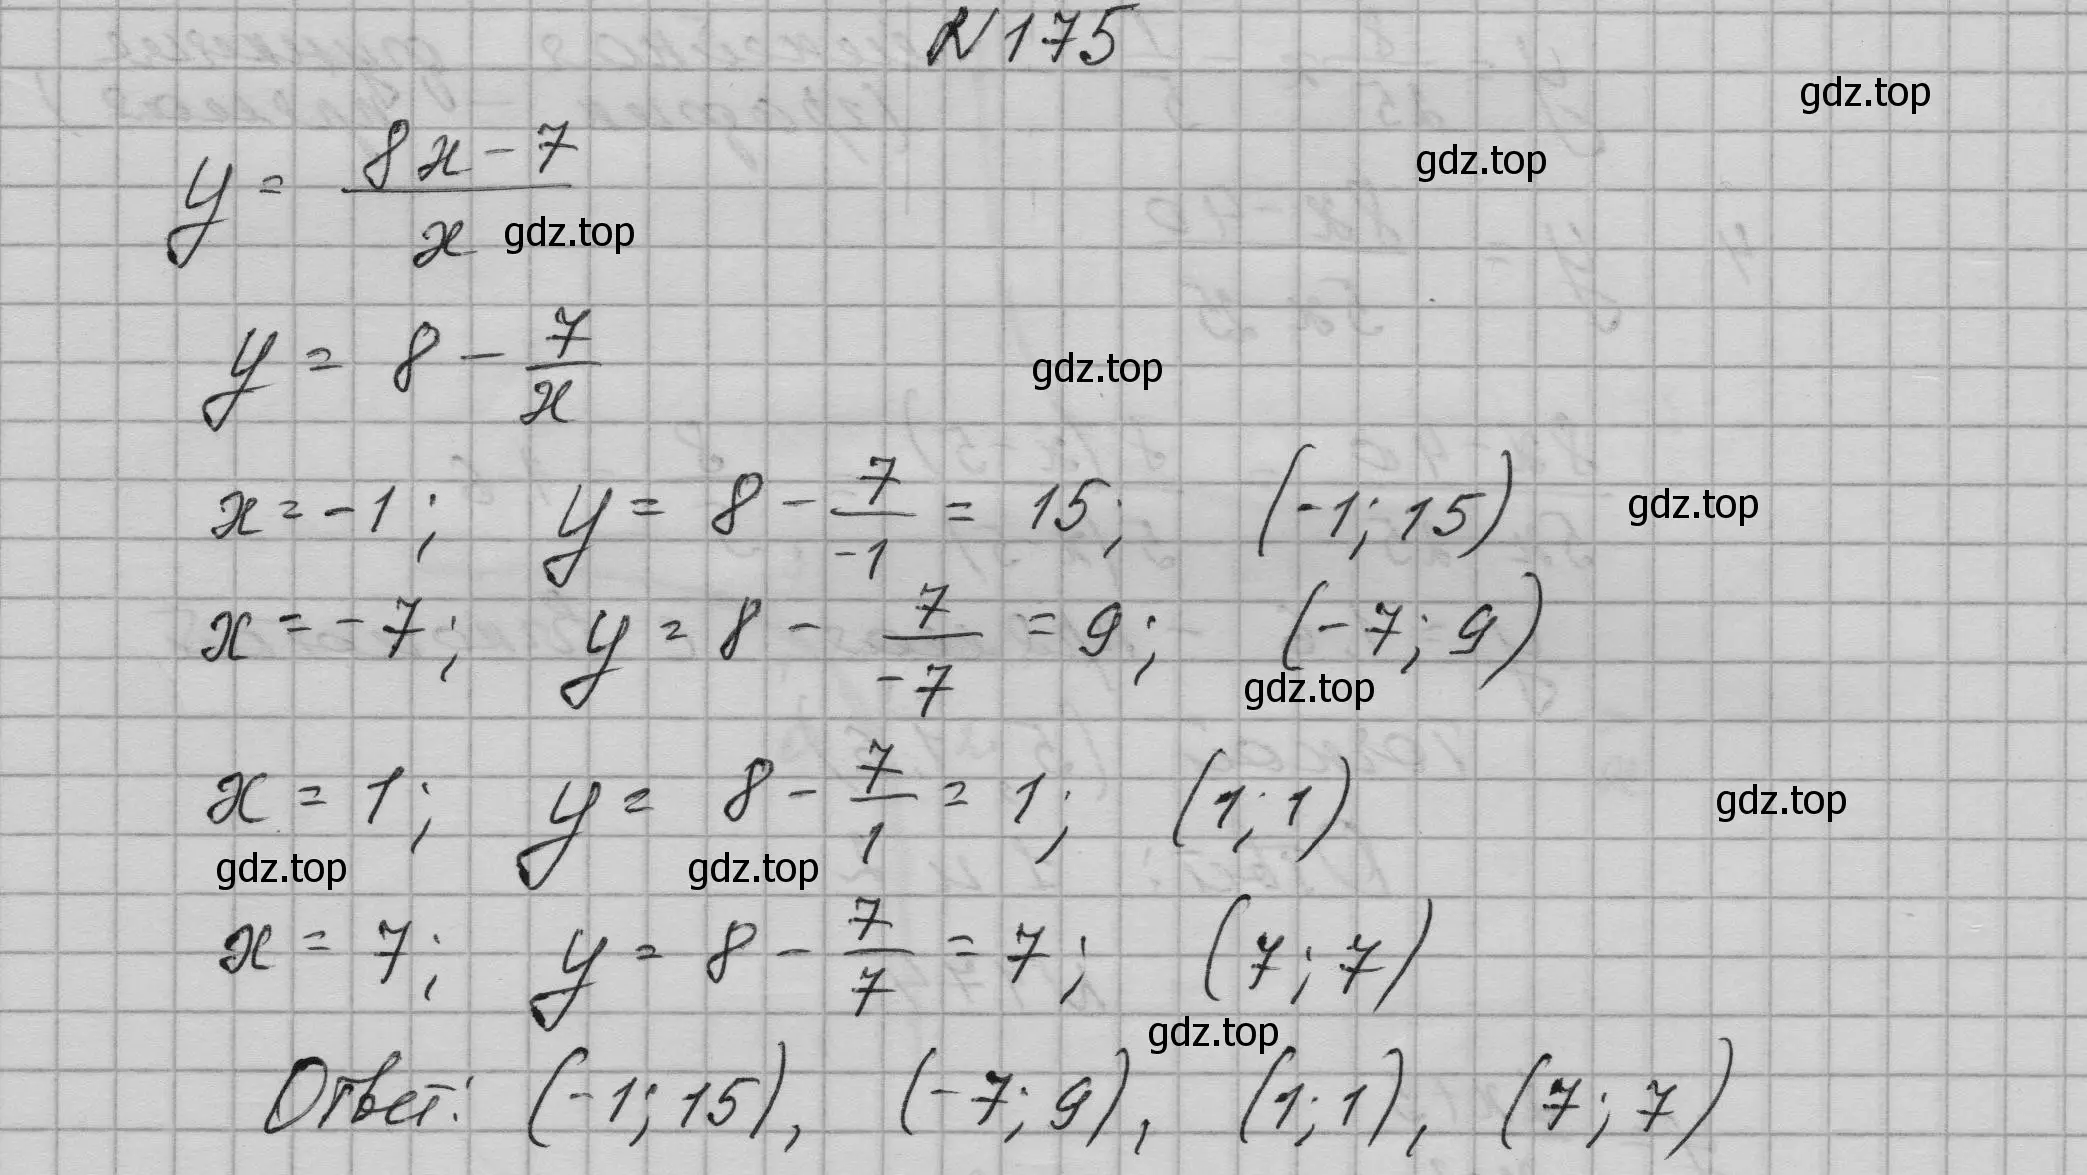 №175
gdz.top
gdz.top
y = (8x - 7)/x
gdz.top
y = 8 - 7/x
gdz.top
x = -1; y = 8 - 7/-1 = 15; (-1; 15)
gdz.top
x = -7; y = 8 - 7/-7 = 9; (-7; 9)
gdz.top
x = 1; y = 8 - 7/1 = 1; (1; 1)
gdz.top
gdz.top gdz.top
x = 7; y = 8 - 7/7 = 7; (7; 7)
gdz.top
Ответ: (-1; 15), (-7; 9), (1; 1), (7; 7)